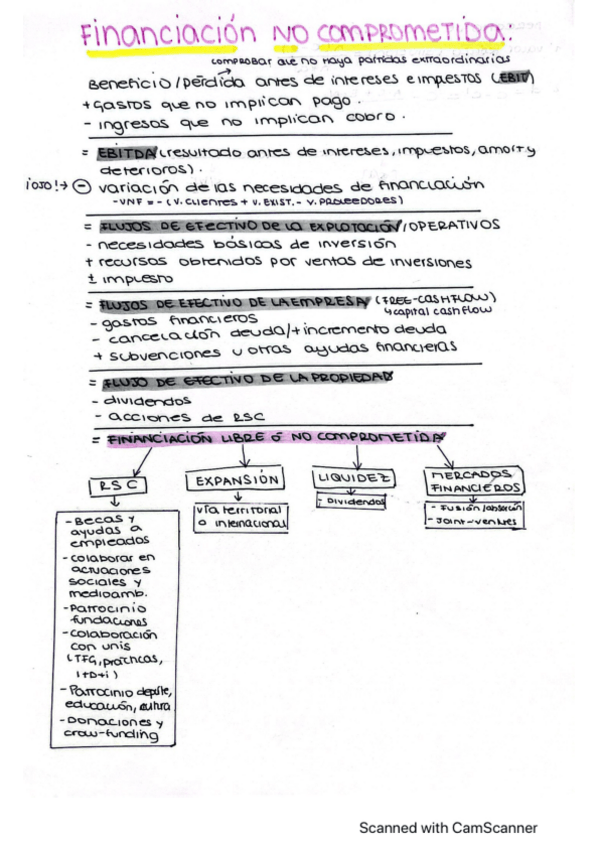 Financiación NO COMPROMETIDA:
comprobar que no haya partidas extraordinarias
Beneficio/pérdida antes de intereses e impuestos (EBIT)
+ Gastos que no implican pago.
- ingresos que no implican cobro.
= EBITDA (resultado antes de intereses, impuestos, amort y
deterioros).
¡OJO!→ - variación de las necesidades de financiación
-VNF = - (V. Clientes + V. EXIST. - V. PROVEEDORES)
= FLUJOS DE EFECTIVO DE LA EXPLOTACIÓN/OPERATIVOS
- necesidades básicas de inversión
+ recursos obtenidos por ventas de inversiones
± impuesto
= FLUJOS DE EFECTIVO DE LA EMPRESA (FREE-CASHFLOW)
↳ capital cashflow
- gastos financieros
- cancelación deuda/+incremento deuda
+ subvenciones u otras ayudas financieras
= FLUJO DE EFECTIVO DE LA PROPIEDAD
- dividendos
- acciones de RSC
= FINANCIACIÓN LIBRE Ó NO COMPROMETIDA
RSC
EXPANSIÓN
LIQUIDEZ
MERCADOS
FINANCIEROS
vía territorial
o internacional
Dividendos
- Fusión/absorción
- Joint-ventures
- Becas y
ayudas a
empleados
- colaborar en
actuaciones
sociales y
medioamb.
- Patrocinio
fundaciones
- colaboración
con unis
(TFG, prácticas,
I+D+i)
- Patrocinio deporte,
educación, cultura
- Donaciones y
crow-funding
Scanned with CamScanner